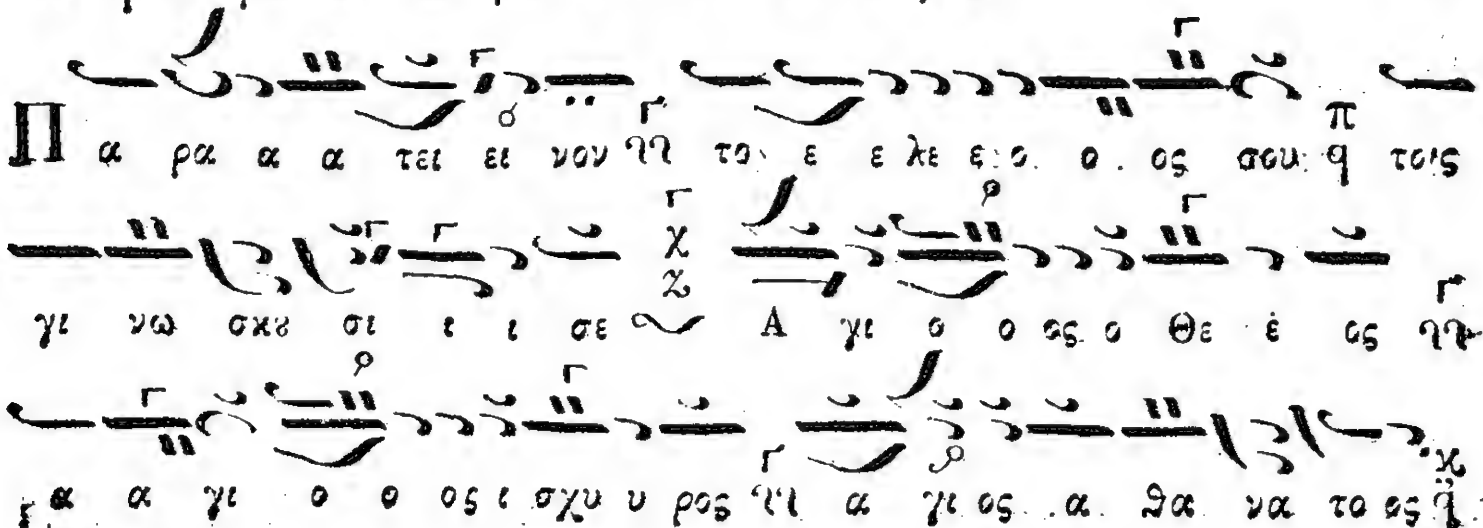 Π α ρα α α τει ει νον το ε ε λε ε ο ο ος σου π q τοις
γι νω σκȣ σι ι ι σε χ Ζ Α γι ο ο ος ο Θε έ ος
α α γι ο ο ος ι σχυ υ ρος α γι ος α θα να το ος χ q